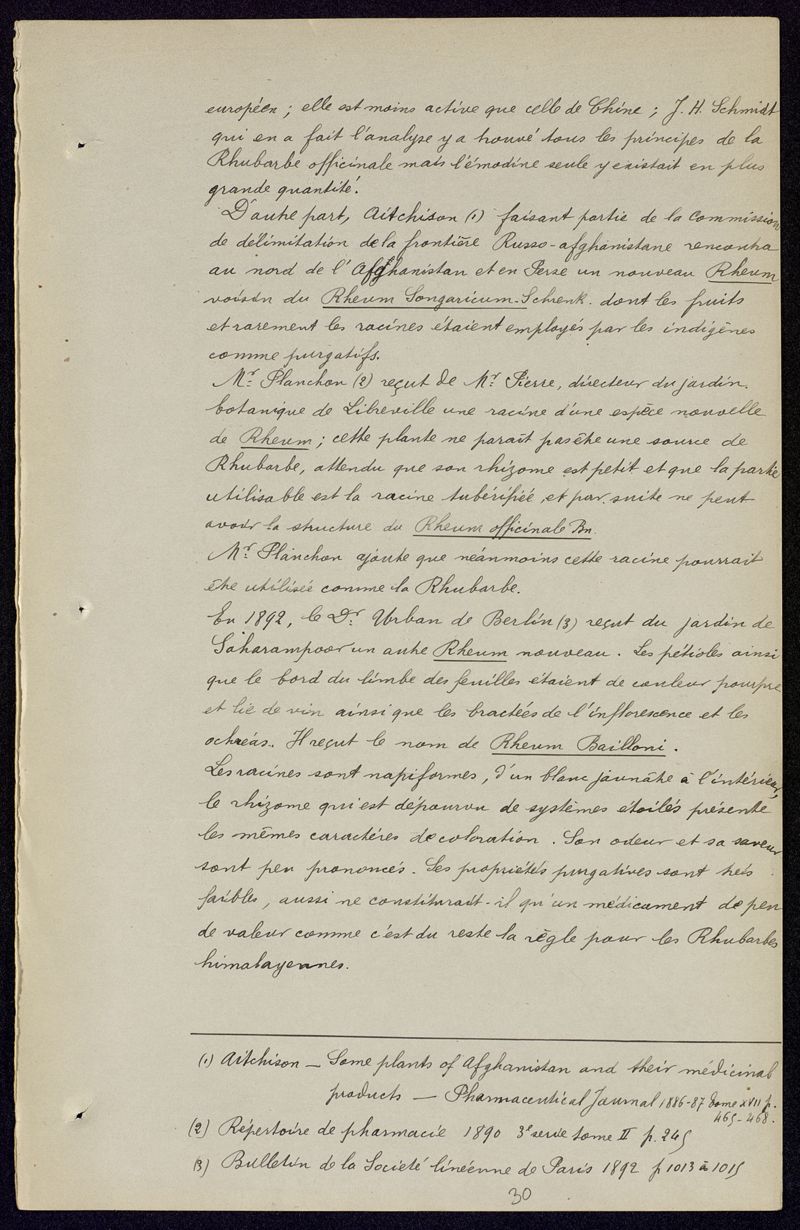 européen ; elle est moins active que celle de Chine ; J. H. Schmidt
qui en a fait l'analyse y a trouvé tous les principes de la
Rhubarbe officinale mais l'émodine seule y existait en plus
grande quantité.
D'autre part, Aitchison (1) faisant partie de la Commission
de délimitation de la frontière Russo-afghanistane rencontra
au nord de l'Afghanistan et en Perse un nouveau Rheum
voisin du Rheum Songaricum-Schrenk. dont les fruits
et rarement les racines étaient employés par les indigènes
comme purgatifs.
Mr. Planchon (2) reçut de Mr. Pierre, directeur du jardin
botanique de Libreville une racine d'une espèce nouvelle
de Rheum ; cette plante ne paraît pas être une source de
Rhubarbe, attendu que son rhizome est petit et que la partie
utilisable est la racine tubérifiée, et par suite ne peut
avoir la structure du Rheum officinale Bn.
Mr. Planchon ajoute que néanmoins cette racine pourrait
être utilisée comme la Rhubarbe.
En 1892, le Dr. Urban de Berlin (3) reçut du jardin de
Saharampoor un autre Rheum nouveau. Les pétioles ainsi
que le bord du limbe des feuilles étaient de couleur pourpre
et lie de vin ainsi que les bractées de l'inflorescence et les
ochréas. Il reçut le nom de Rheum Bailloni.
Les racines sont napiformes, d'un blanc jaunâtre à l'intérieur,
le rhizome qui est dépourvu de systèmes étoilés présente
les mêmes caractères de coloration. Son odeur et sa saveur
sont peu prononcés. Ses propriétés purgatives sont très
faibles, aussi ne constiturait-il qu'un médicament de peu
de valeur comme c'est du reste la règle pour les Rhubarbes
himalayennes.
(1) Aitchison — Some plants of Afghanistan and their médicinal
products — Pharmaceutical Journal 1886-87 Tome XVII p.
465-468.
(2) Répertoire de pharmacie 1890 3e serie tome II p. 245
(3) Bulletin de la Societé linéenne de Paris 1892 p 1013 à 1015
30